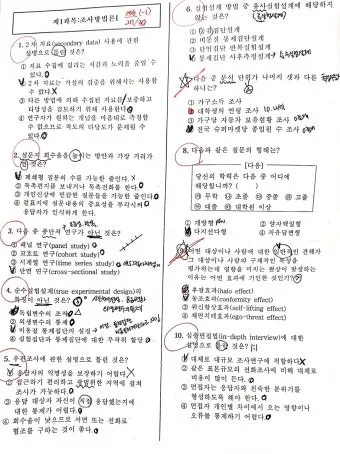 제1과목:조사방법론I
1. 2차 자료(secondary data) 사용에 관한
설명으로 틀린 것은?
① 자료 수집에 걸리는 시간과 노력을 줄일 수
있다.
② 2차 자료는 가설의 검증을 위해서는 사용할
수 없다.
③ 다른 방법에 의해 수집된 자료를 보충하고
타당성을 검토하기 위해 사용한다.
④ 연구자가 원하는 개념을 마음대로 측정할
수 없으므로 척도의 타당도가 문제될 수
있다.
2. 설문지 회수율을 높이는 방안과 가장 거리가
먼 것은?
① 폐쇄형 질문의 수를 가능한 줄인다.
② 독촉편지를 보내거나 독촉전화를 한다.
③ 개인신상에 민감한 질문들을 가능한 줄인다.
④ 겉표지에 설문내용의 중요성을 부각시켜
응답자가 인식하게 한다.
3. 다음 중 종단적 연구가 아닌 것은?
① 패널 연구(panel study)
② 코호트 연구(cohort study)
③ 시계열 연구(time series study)
④ 단면 연구(cross-sectional study)
4. 순수실험설계(true experimental design)의
특징이 아닌 것은?
① 독립변수의 조작
② 외생변수의 통제
③ 비동질 통제집단의 설정
④ 실험집단과 통제집단에 대한 무작위 할당
5. 우편조사에 관한 설명으로 틀린 것은?
① 응답자의 익명성을 보장하기 어렵다.
② 접근하기 편리하고 광범위한 지역에 걸쳐
조사가 가능하다.
③ 응답 대상자 자신이 직접 응답했는지에
대한 통제가 어렵다.
④ 회수율이 낮으므로 서면 또는 전화로
협조를 구하는 것이 좋다.
6. 실험설계 방법 중 유사실험설계에 해당하지
않는 것은?
② 비동질 통제집단설계
③ 단일집단 반복실험설계
④ 통제집단 사후측정설계
7. 다음 중 분석 단위가 나머지 셋과 다른
하나는?
① 가구소득 조사
② 대학생의 연령 조사
③ 가구당 자동차 보유현황 조사
④ 전국 슈퍼마켓당 종업원 수 조사
8. 다음과 같은 질문의 형태는?
[다음]
당신의 학력은 다음 중 어디에
해당합니까? ( )
① 무학 ② 초졸 ③ 중졸 ④ 고졸
⑤ 대졸 ⑥ 대학원 이상
① 개방형 ② 양자택일형
③ 다지선다형 ④ 자유답변형
9. 어떤 대상이나 사람에 대한 일반적인 견해가
그 대상이나 사람의 구체적인 특성을
평가하는데 영향을 미치는 현상이 발생하는
이유는 어떤 효과에 기인한 것인가?
① 후광효과(halo effect)
② 동조효과(conformity effect)
③ 위신향상효과(self-lifting effect)
④ 체면치레효과(ego-threat effect)
10. 심층면접법(in-depth interview)에 대한
설명으로 틀린 것은?
① 대체로 대규모 조사연구에 적합하다.
② 같은 표본규모의 전화조사에 비해 대체로
비용이 많이 든다.
③ 면접자는 응답자와 친숙한 분위기를
형성하도록 해야 한다.
④ 면접자 개인별 차이에서 오는 영향이나
오류를 통제하기 어렵다.